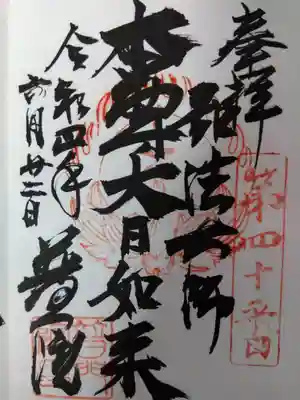 奉拝
弘法大師
本尊大日如来
令和四年
六月廿二日
普門院